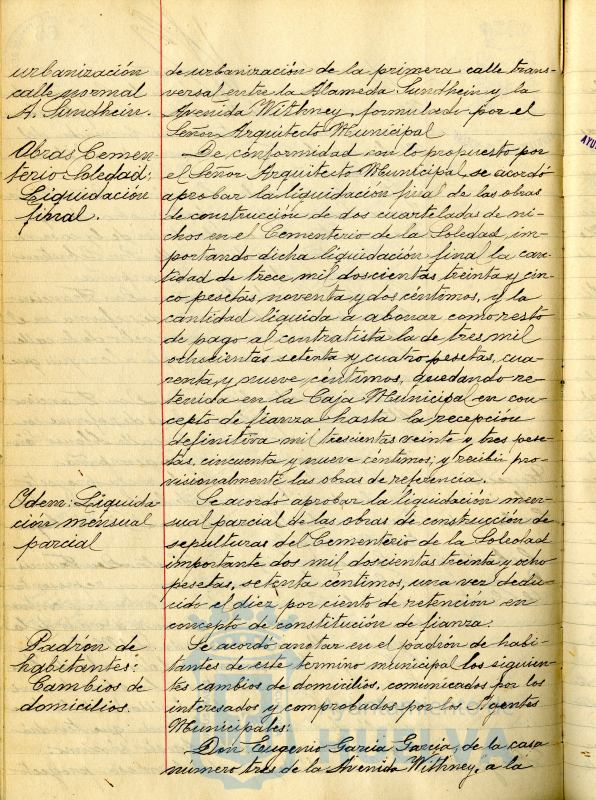 urbanización
calle normal
A. Sundhein.
de urbanización de la primera calle trans-
versal entre la Alameda Sundhein y la
Avenida Withney, formulado por el
Señor Arquitecto Municipal
Obras Cemen-
terio Soledad:
Liquidación
final.
De conformidad con lo propuesto por
el Señor Arquitecto Municipal, se acordó
aprobar la liquidación final de las obras
de construcción de dos cuarteladas de ni-
chos en el Cementerio de la Soledad, im-
portando dicha liquidación final la can-
tidad de trece mil doscientas treinta y cin-
co pesetas noventa y dos céntimos, y la
cantidad líquida a abonar como resto
de pago al contratista la de tres mil
ochocientas setenta y cuatro pesetas, cua-
renta y nueve céntimos, quedando re-
tenida en la Caja Municipal en con-
cepto de fianza hasta la recepción
definitiva mil trescientas veinte y tres pese-
tas, cincuenta y nueve céntimos; y recibir pro-
visionalmente las obras de referencia.
Idem: Liquida-
ción mensual
parcial
Se acordó aprobar la liquidación men-
sual parcial de las obras de construcción de
sepulturas del Cementerio de la Soledad
importante dos mil doscientas treinta y ocho
pesetas, setenta céntimos, una vez dedu-
cido el diez por ciento de retención en
concepto de constitución de fianza.
Padrón de
habitantes:
Cambios de
domicilios.
Se acordó anotar en el padrón de habi-
tantes de este término municipal los siguien-
tes cambios de domicilios, comunicados por los
interesados y comprobados por los Agentes
Municipales:
Don Eugenio García García, de la casa
número tres de la Avenida Withney, a la
AYU
HUELVA